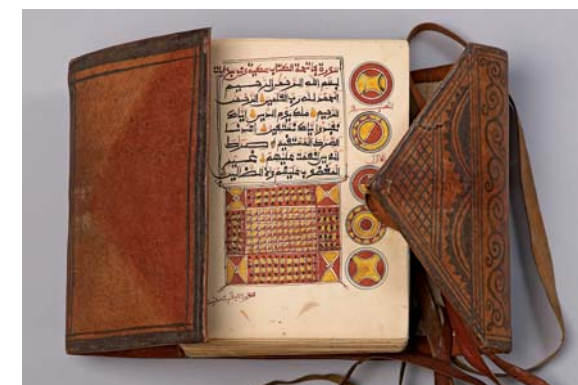 سورة فاتحة الكتاب مكية
بسم الله الرحمن الرحيم
الحمد لله رب العلمين الرحمن
الرحيم ملك يوم الدين إياك
نعبد وإياك نستعين اهدنا
الصرط المستقيم صرط
الذين أنعمت عليهم غير
المغضوب عليهم ولا الضالين